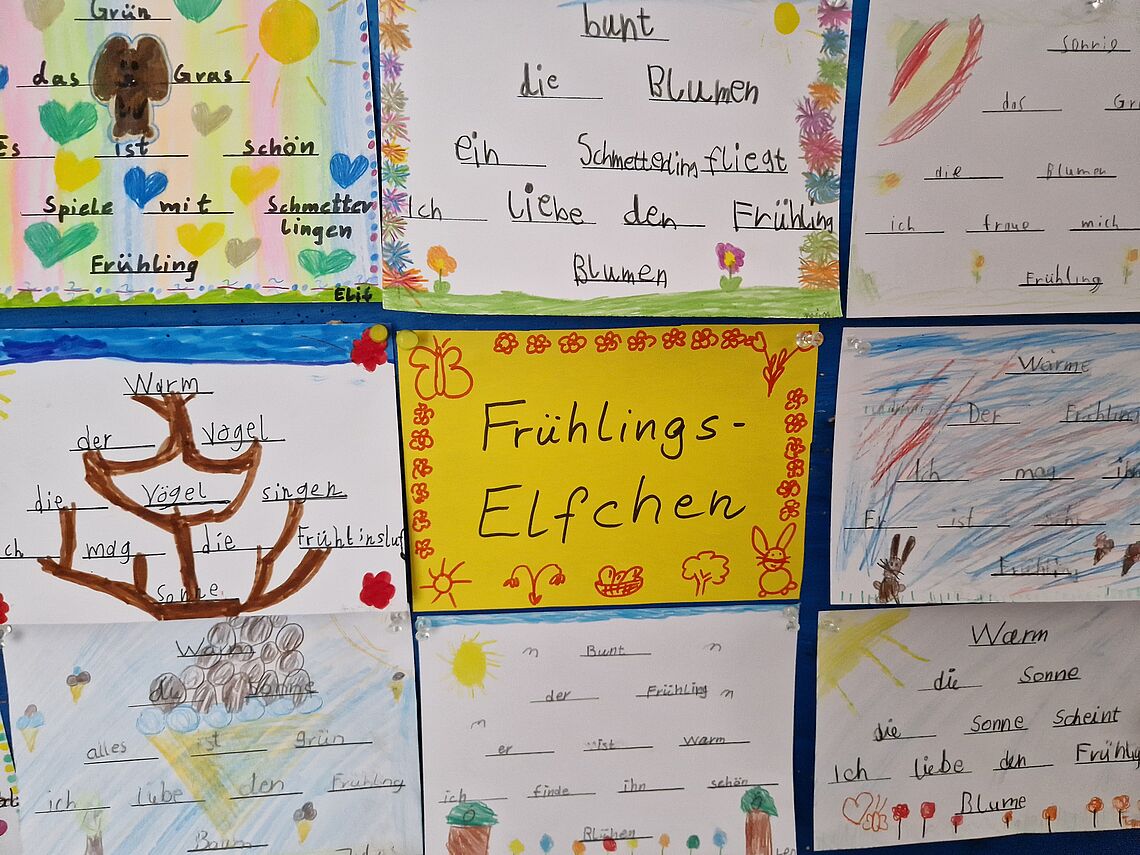 Grün
das Gras
Es ist schön
Spiele mit Schmetter
lingen
Frühling
Elif
bunt
die Blumen
ein Schmetterling fliegt
Ich liebe den Frühling
Blumen
Sonnig
das
die Blumen
ich fraue mich
Frühling
Warm
der Vogel
die Vögel singen
mag die Frühlinsluf
Sonne
Frühlings-
Elfchen
Wärme
Der Frühling
Ich mag ihn
Er ist
Frühling
Warm
die Sonne
alles ist grün
ich liebe den Frühling
Baum
Bunt
der Frühling
er ist warm
ich finde ihn schön
Blühen
Warm
die Sonne
die Sonne Scheint
Ich liebe den Frühlig
Blume